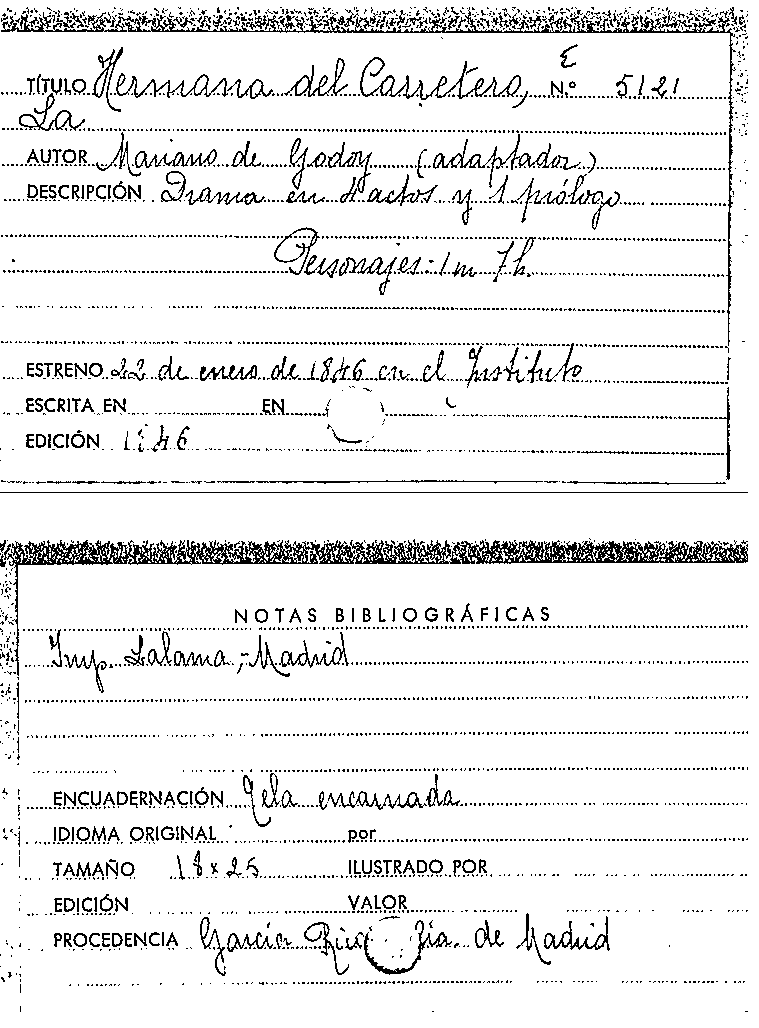 E
TÍTULO Hermana del Carretero, N.º 5121
La
AUTOR Mariano de Godoy (adaptador)
DESCRIPCIÓN Drama en 4 actos y 1 prólogo
Personajes: 1 m 7 h.
ESTRENO 22 de enero de 1846 en el Instituto
ESCRITA EN EN
EDICIÓN 1846
NOTAS BIBLIOGRÁFICAS
Imp. Lalama,- Madrid
ENCUADERNACIÓN Tela encarnada
IDIOMA ORIGINAL por
TAMAÑO 18 x 25
ILUSTRADO POR
EDICIÓN VALOR
PROCEDENCIA García Rico de Madrid